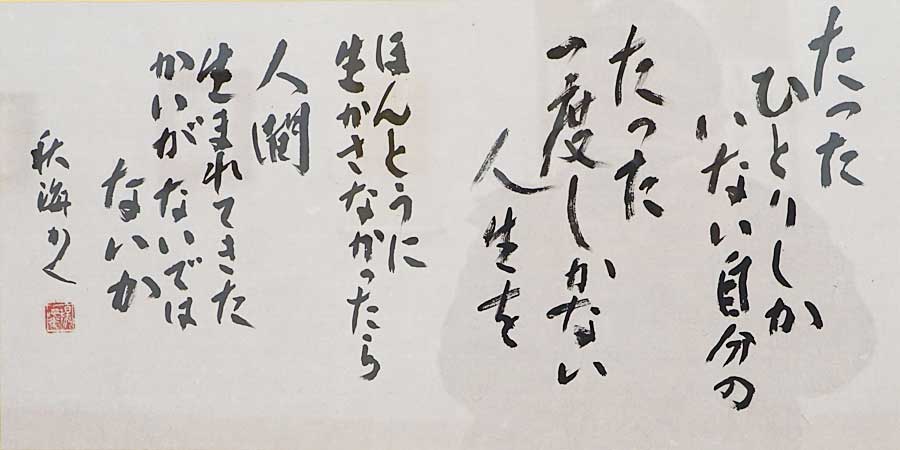 たった
ひとりしか
いない自分の
たった
一度しかない
人生を
ほんとうに
生かさなかったら
人間
生まれてきた
かいがないでは
ないか